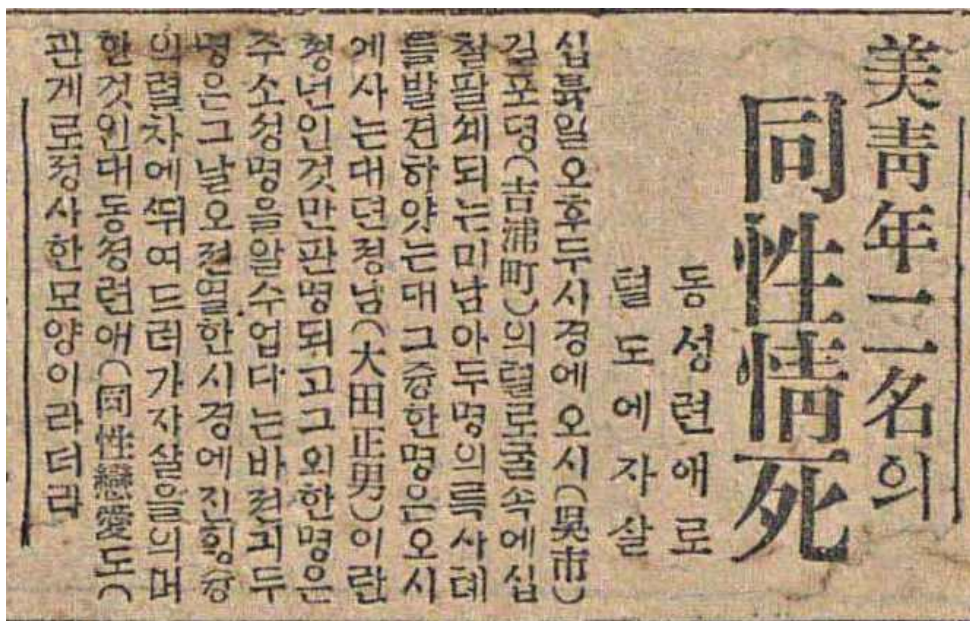 美靑年二名의
同性情死
동성련애로
텰도에자살
십륙일오후두사경에오시(吳市)
길포뎡(吉浦町)의텰로굴속에십
칠팔세되는미남아두명의륵사톄
를발견하얏는대그중한명은오시
에사는대뎐정남(大田正男)이란
청년인것만판명되고그외한명은
주소성명을알수업다는바전긔두
명은그날오전열한시경에진행중
의렬차에뛰여드러가자살을의머
한것인대동성련애(同性戀愛)도(
관계로정사한모양이라더라